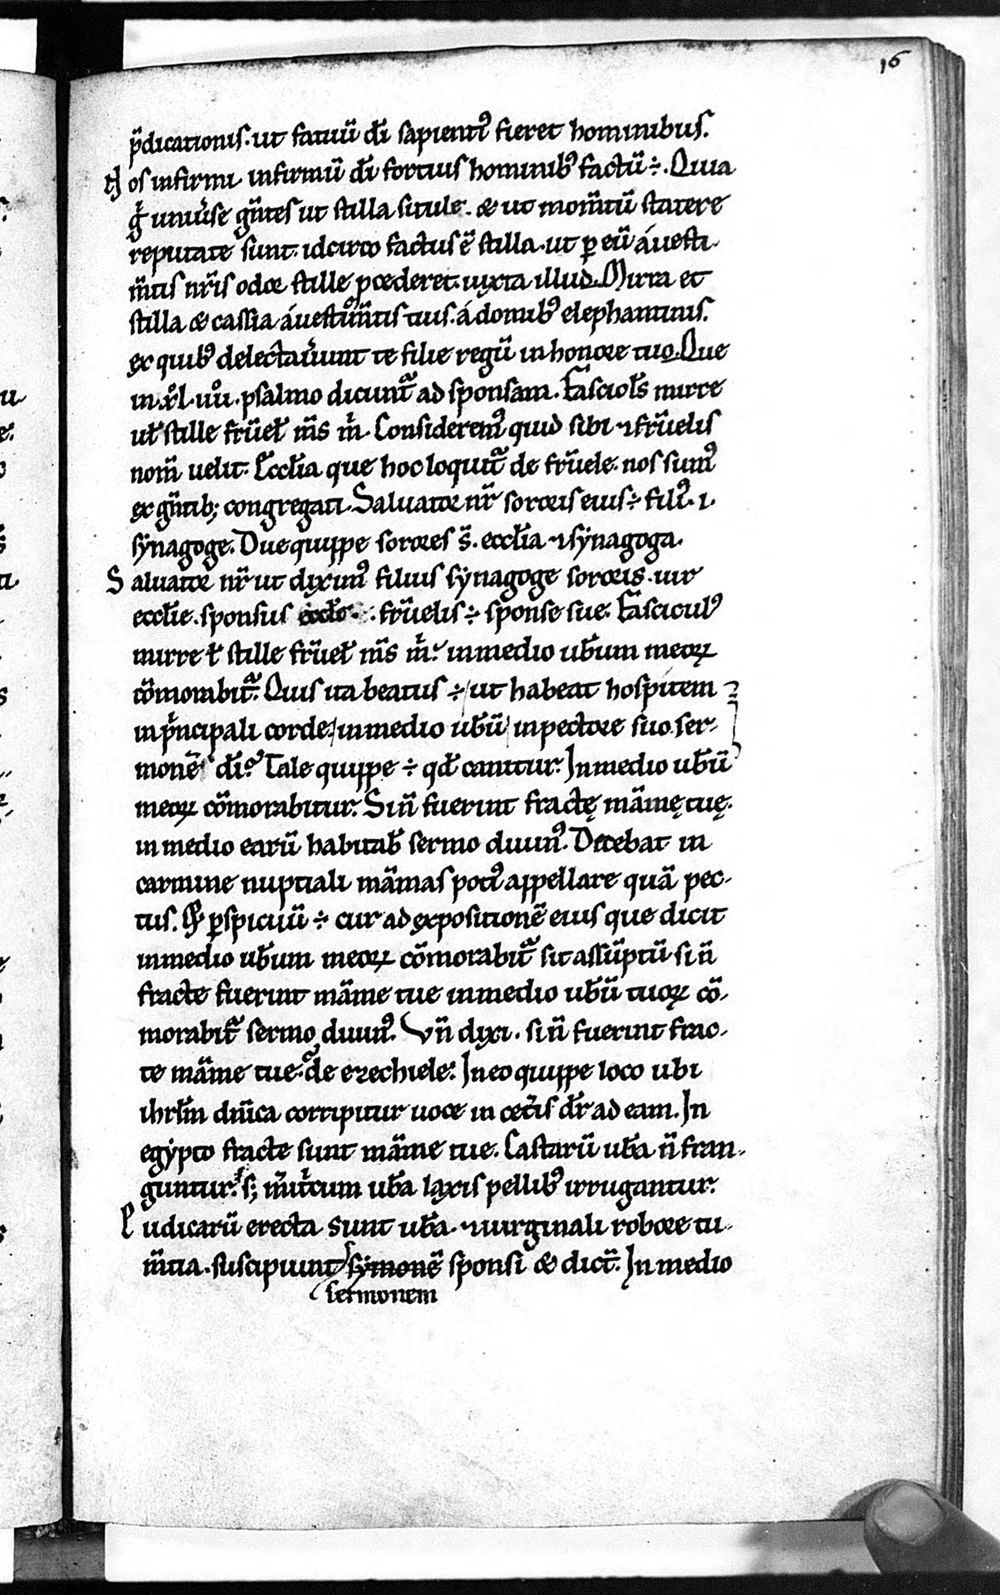 16
p̄dicationis. ut fatuū dī sapientꝰ fieret hominibus.
Nos infirmi infirmū dī fortius hominibꝰ factū ÷. Quia
gͥ uniu̾se gn̄tes ut stilla situle. & ut mom̄tū statere
reputate sunt. idcirco factus ē stilla. ut ꝑ eū á uesti-
m̄tis nr̄is odor stille ꝓcederet. iuxta illud. Mirra et
stilla & cassia á uestim̄tis tuis. á domibꝰ elephantinis.
ex quibꝰ delectau̾unt te filie regū in honore tuo. Que
in .xͦl.uͦ. psalmo dicunt᷑ ad sponsam. Fascicul̄s mirre
ul̄ stille fr̄uel̄ m̄s m̊. Consideremꝰ quid sibi ⁊ fr̄uelis
nom̄ uelit. Eccl̄ia que hoc loquit᷑ de fr̄uele. nos sumꝰ
ex gn̄tib; congregati. Saluator nr̄ sororis eius ÷ filiꝰ .i.
synagoge. Due quippe sorores s̄. eccl̄ia ⁊ synagoga.
Saluator nr̄ ut diximꝰ filius synagoge sororis. uir
eccl̄ie. sponsus eccl̄e. fr̄uelis ÷ sponse sue. Fasciculꝰ
mirre ł stille fr̄uel̄ m̄s m̊. in medio ub̄um meoꝝ
cōmorabit᷑. Quis ita beatus ÷ ut habeat hospitem
in pͥncipali corde. in medio ub̄ū in pectore suo. ser-
monē dī. Tale quippe ÷ qd̄ canitur. In medio ub̄ū
meoꝝ cōmorabitur. Si n̄ fuerint fractę māmę tuę.
in medio earū habitab̄ sermo diuinꝰ. Decebat in
carmine nuptiali māmas potiꝰ appellare quā pec-
tus. Et ꝑspicuū ÷ cur ad expositionē eius que dicit
in medio ub̄um meoꝝ cōmorabit᷑ sit assūptū si n̄
fracte fuerint māme tue in medio ub̄ū tuoꝝ cō-
morabit᷑ sermo diuinꝰ. Vn̄ dixi. si n̄ fuerint frac-
te māme tue. de ezechiele. In eo quippe loco ubi
ihrl̄m dn̄ica corripitur uoce in cet̾is dr̄ ad eam. In
egypto fracte sunt māme tue. Castarū ub̄a n̄ fran-
guntur. s; m̾etͥcum ub̄a laxis pellibꝰ irrugantur.
Pudicarū erecta sunt ub̄a. ⁊ uirginali robore tu-
m̄tia. suscipiunt symonē sponsi & dict̄. In medio
sermonem